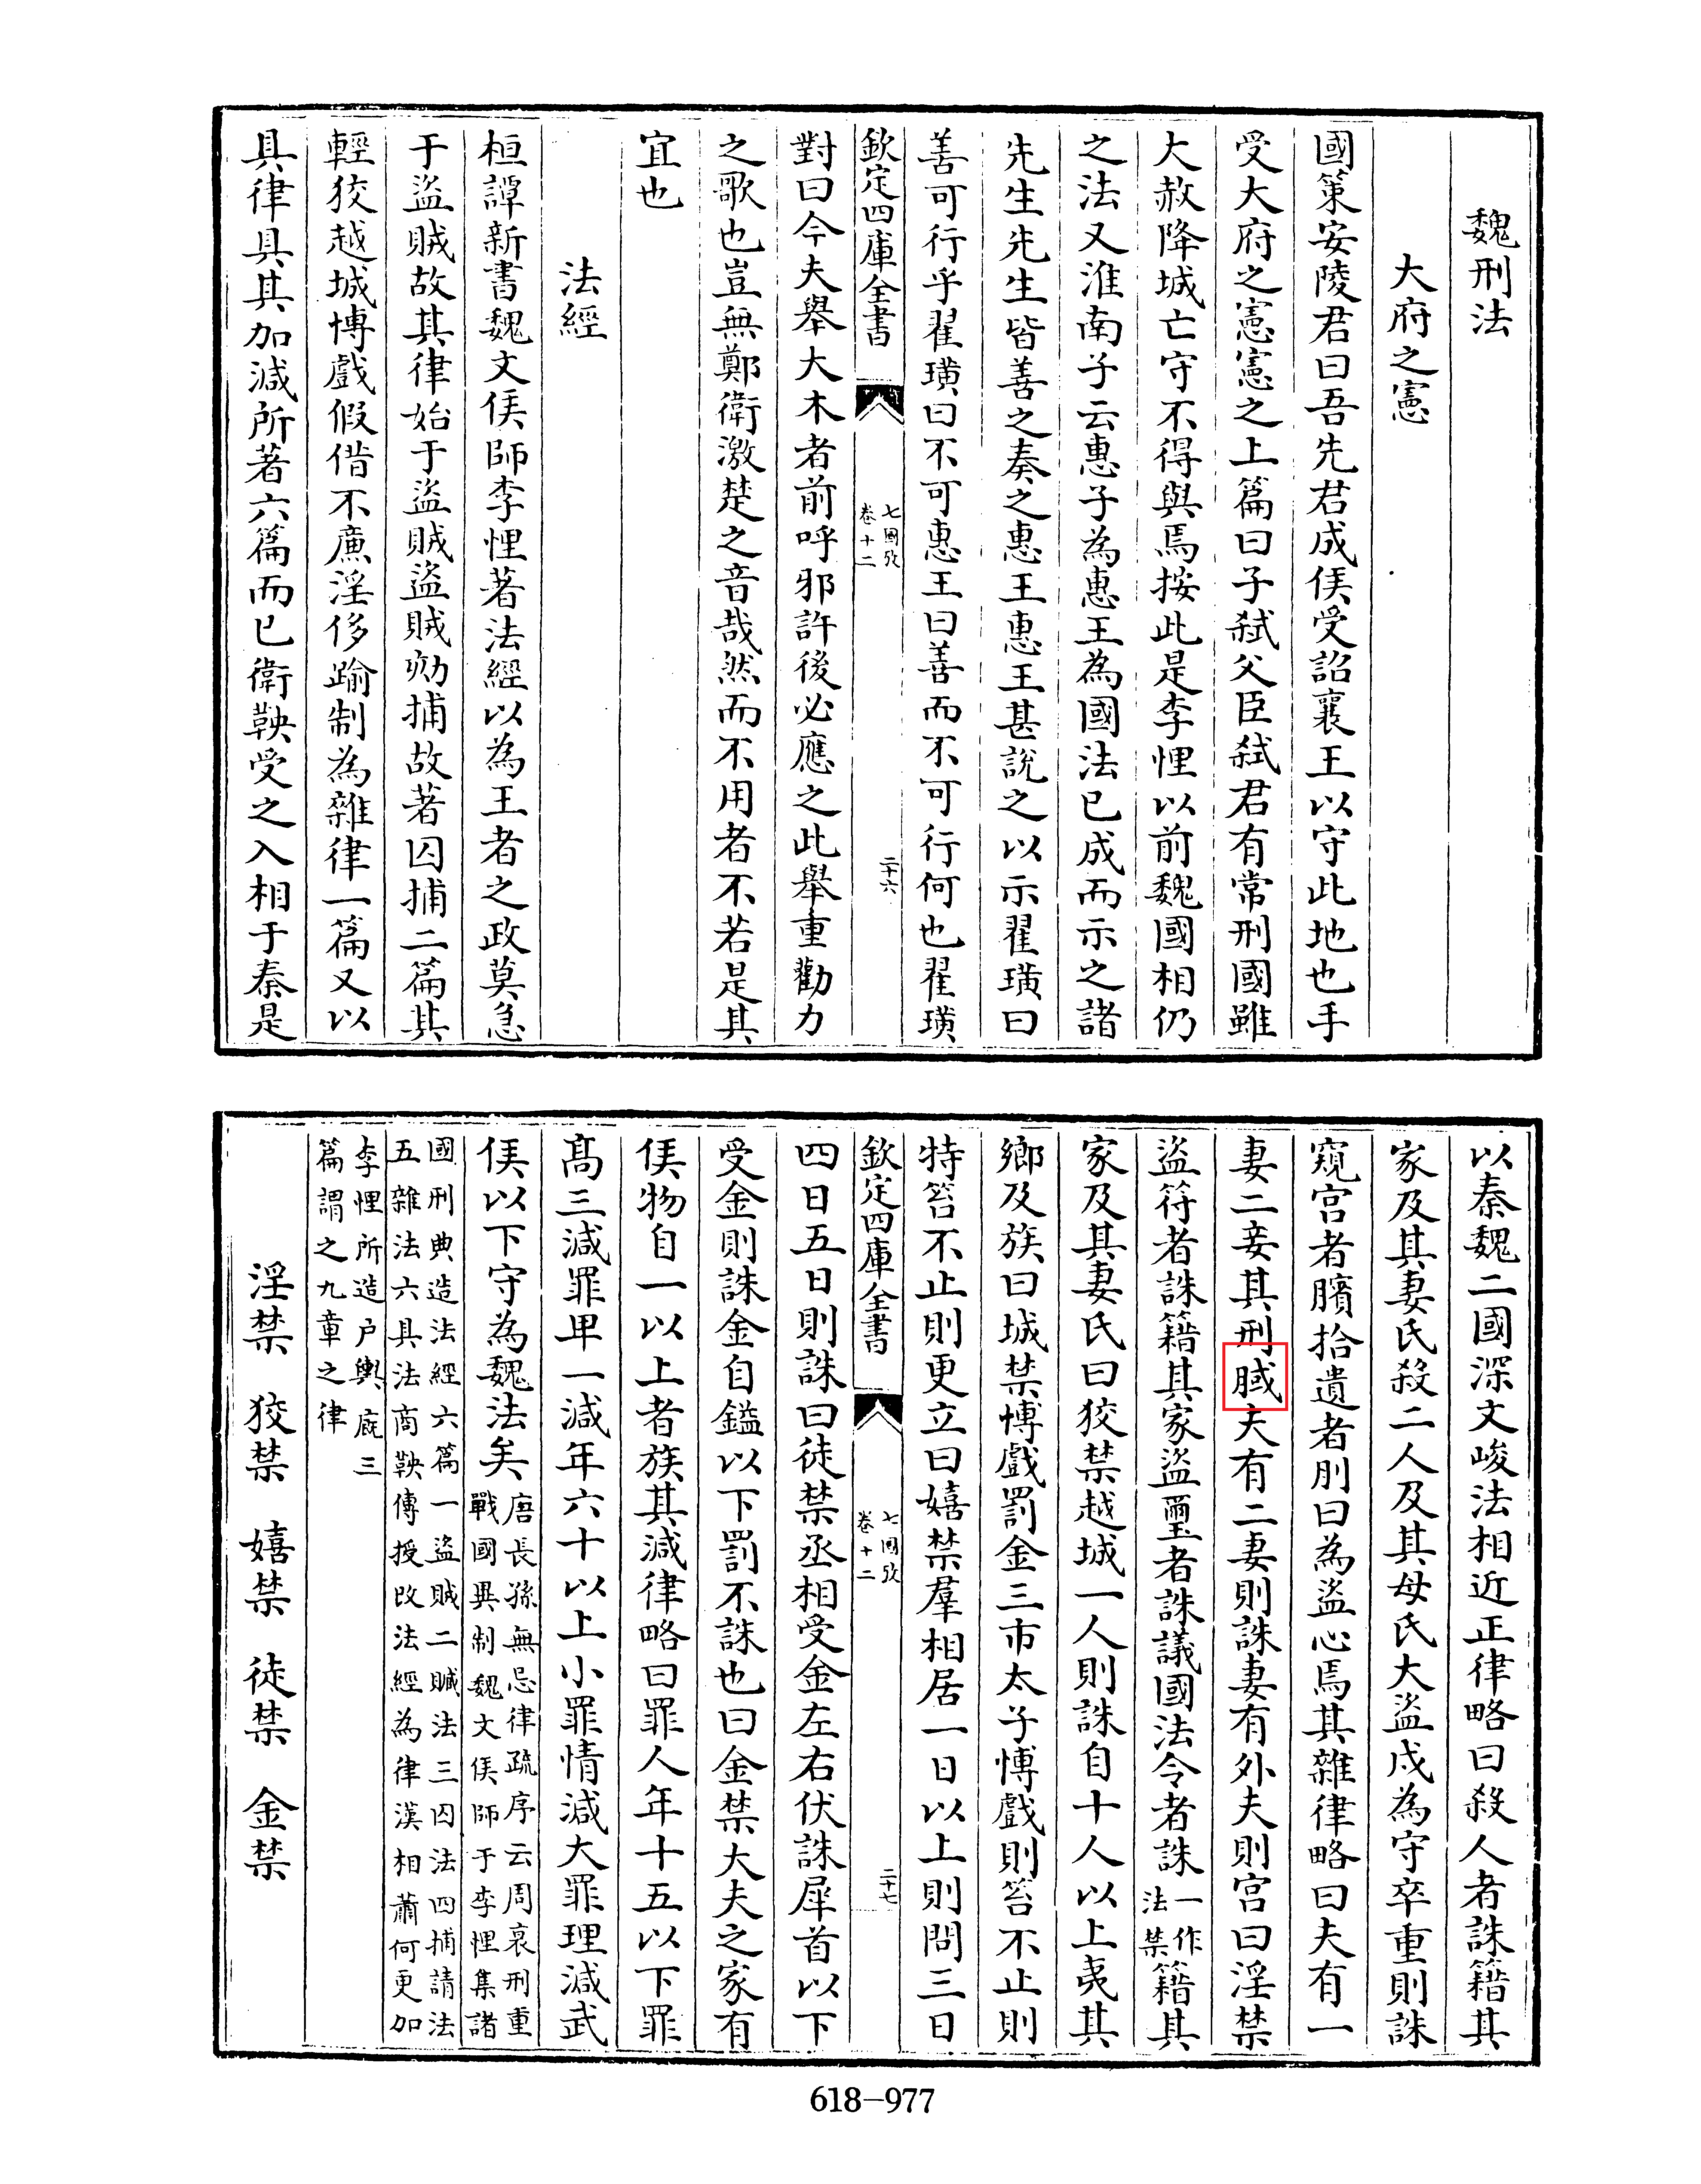 魏刑法
大府之憲
國策安陵君曰吾先君成侯受詔襄王以守此地也手
受大府之憲憲之上篇曰子弑父臣弑君有常刑國雖
大赦降城亡守不得與焉按此是李悝以前魏國相仍
之法又淮南子云惠子為惠王為國法已成而示之諸
先生先生皆善之奏之惠王惠王甚說之以示翟璜曰
善可行乎翟璜曰不可惠王曰善而不可行何也翟璜
欽定四庫全書
七國攷
卷十二
二十六
對曰今夫舉大木者前呼邪許後必應之此舉重勸力
之歌也豈無鄭衛激楚之音哉然而不用者不若是其
宜也
法經
桓譚新書魏文侯師李悝著法經以為王者之政莫急
于盜賊故其律始于盜賊盜賊須劾捕故著囚捕二篇其
輕狡越城博戲假借不廉淫侈踰制為雜律一篇又以
具律具其加減所著六篇而已衛鞅受之入相于秦是
以秦魏二國深文峻法相近正律略曰殺人者誅籍其
家及其妻氏殺二人及其母氏大盜戍為守卒重則誅
窺宫者臏拾遺者刖曰為盜心焉其雜律略曰夫有一
妻二妾其刑䏹夫有二妻則誅妻有外夫則宫曰淫禁
盜符者誅籍其家盜璽者誅議國法令者誅一作法禁籍其
家及其妻氏曰狡禁越城一人則誅自十人以上夷其
鄉及族曰城禁博戲罰金三市太子博戲則笞不止則
特笞不止則更立曰嬉禁羣相居一日以上則問三日
欽定四庫全書
七國攷
卷十二
二十七
四日五日則誅曰徒禁丞相受金左右伏誅犀首以下
受金則誅金自鎰以下罰不誅也曰金禁大夫之家有
侯物自一以上者族其減律略曰罪人年十五以下罪
髙三減罪卑一減年六十以上小罪情減大罪理減武
侯以下守為魏法矣唐長孫無忌律疏序云周衰刑重
戰國異制魏文侯師于李悝集諸
國刑典造法經六篇一盜賊二贓法三囚法四捕請法
五雜法六具法商鞅傳授改法經為律漢相蕭何更加
李悝所造户輿廐三
篇謂之九章之律
淫禁　狡禁　嬉禁　徒禁　金禁
618-977